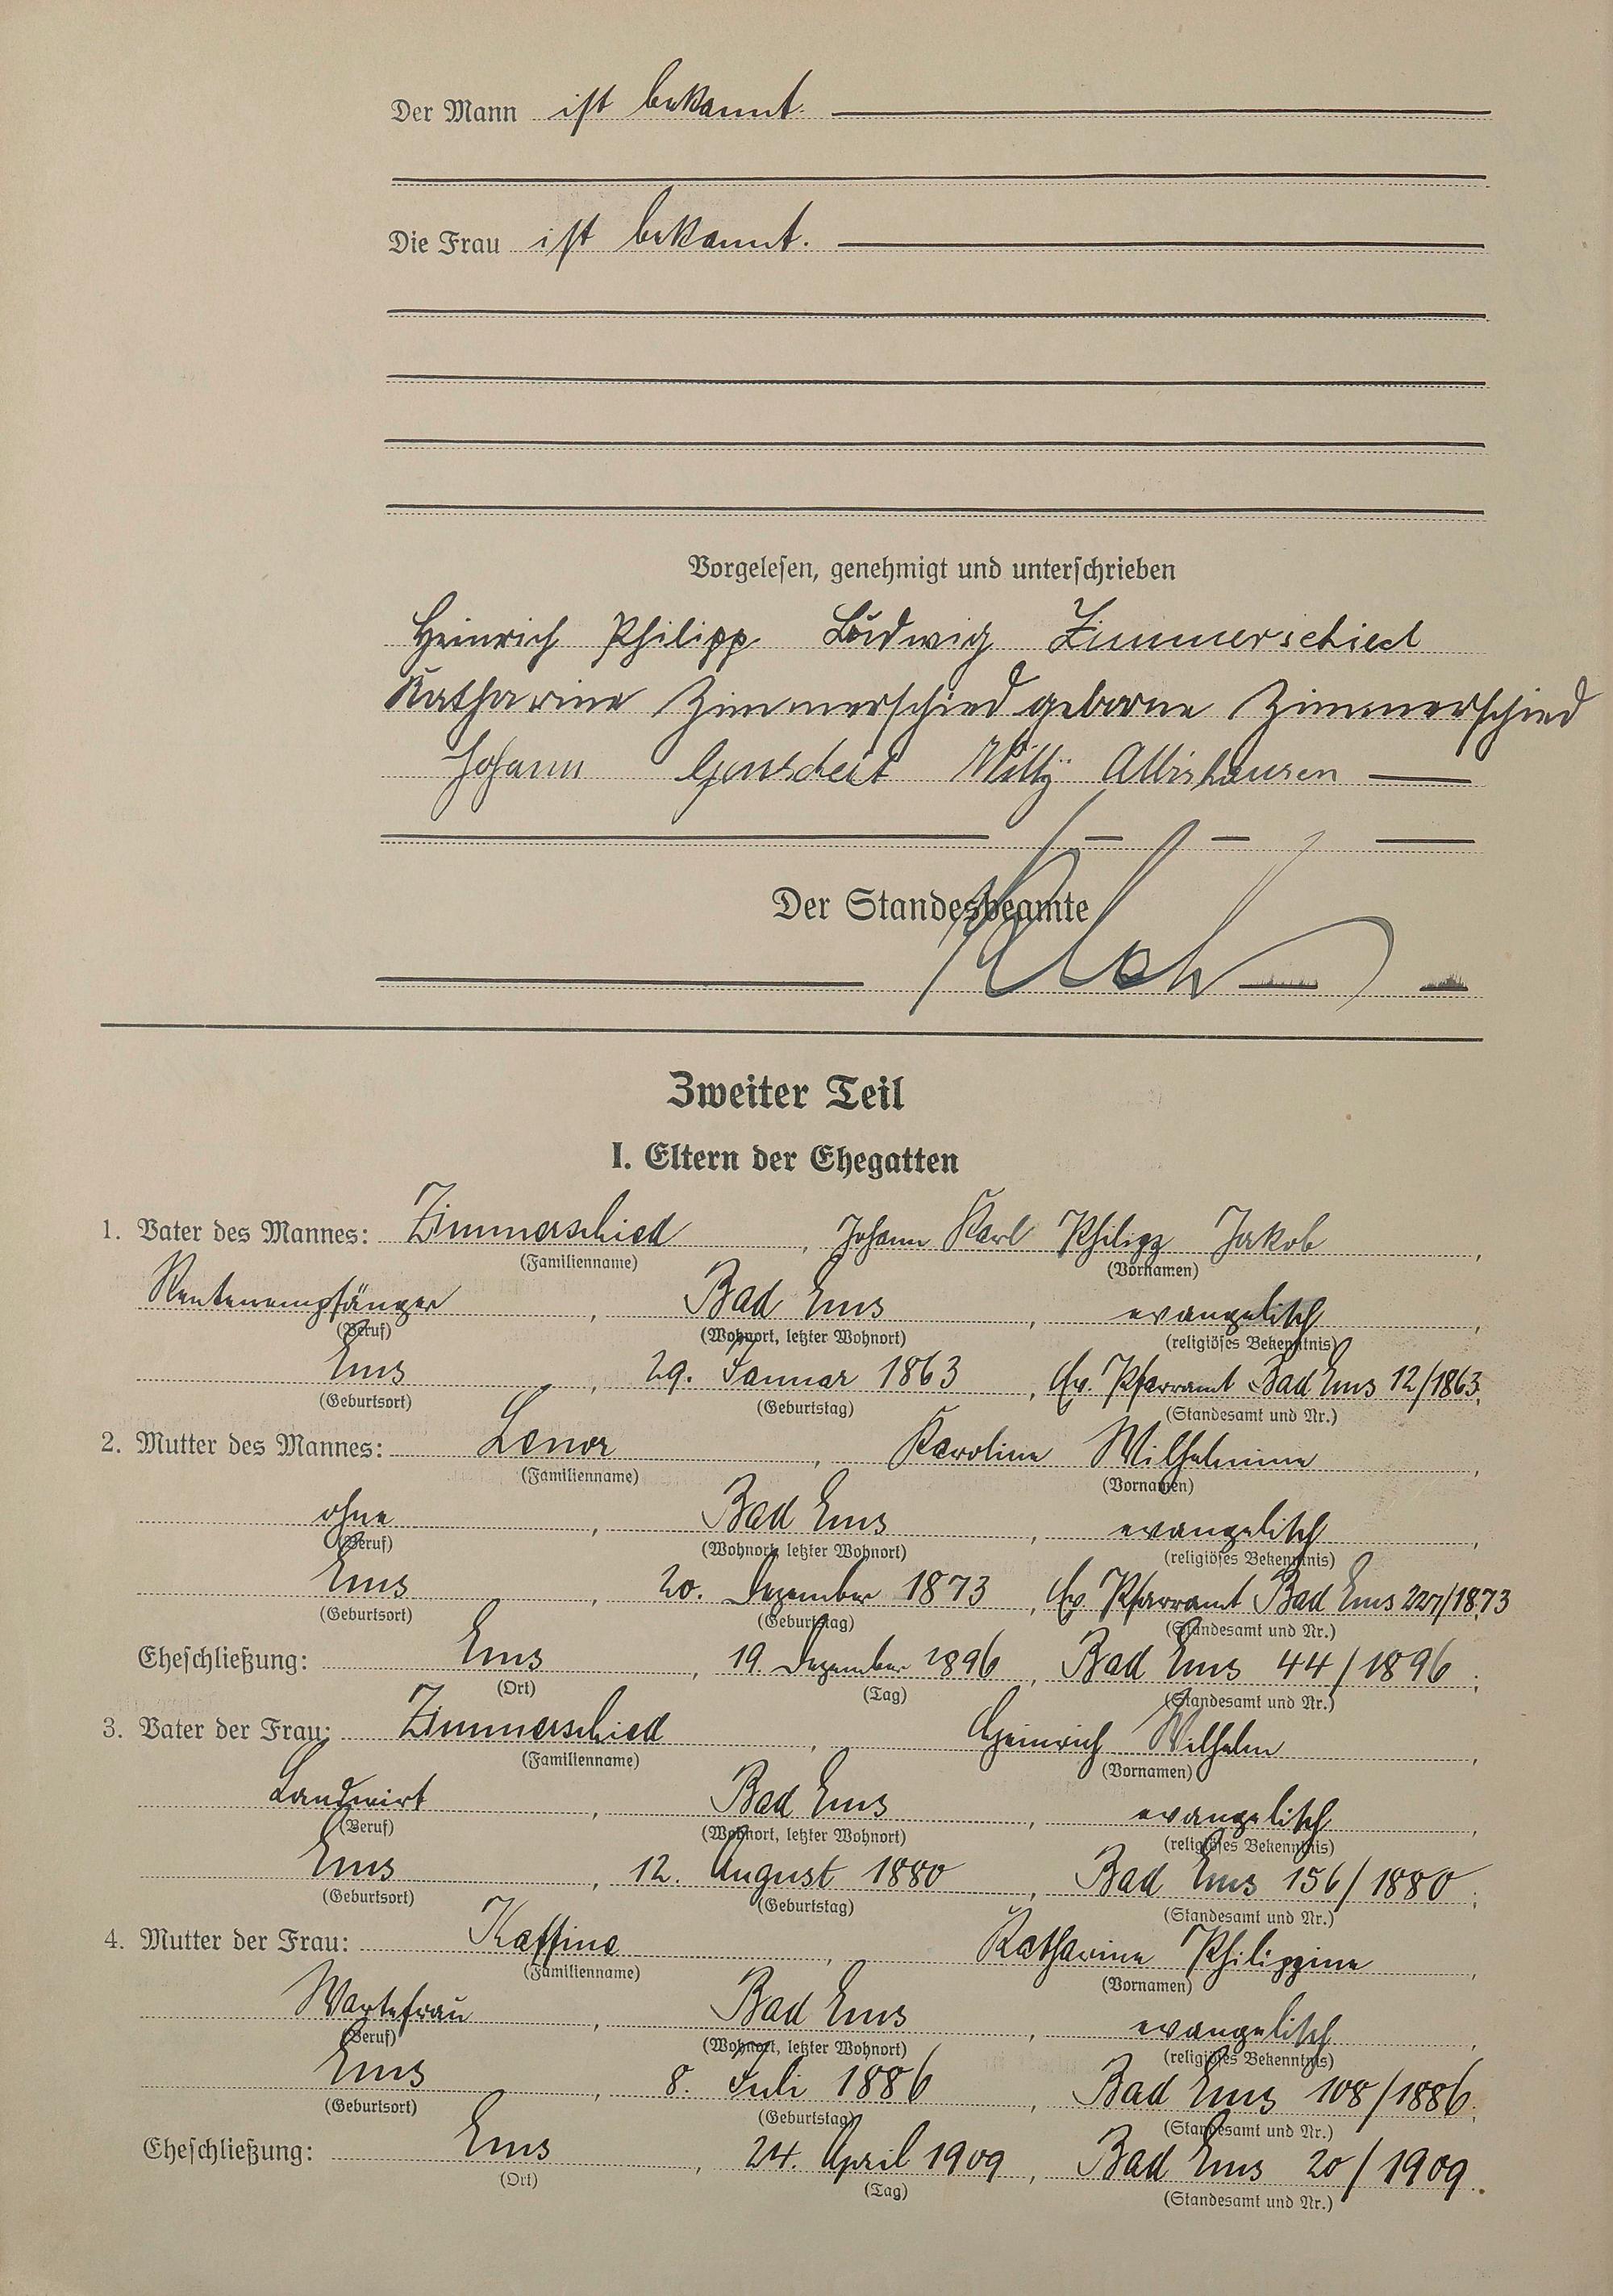 Der Mann ist bekannt.
Die Frau ist bekannt.
Vorgelesen, genehmigt und unterschrieben
Heinrich Philipp Ludwig Zimmerschied
Katharine Zimmerschied geborne Zimmerschied
Johann Willy Albishausen
Der Standesbeamte
Zweiter Teil
I. Eltern der Ehegatten
1. Vater des Mannes: Zimmerschied, Johann Karl Philipp Jakob,
(Familienname) (Vornamen)
Rentenempfänger, Bad Ems, evangelisch,
(Beruf) (Wohnort, letzter Wohnort) (religiöses Bekenntnis)
Ems, 29. Januar 1863, Ev. Pfarramt Bad Ems 12/1863;
(Geburtsort) (Geburtstag) (Standesamt und Nr.)
2. Mutter des Mannes: Lenor, Karoline Wilhelmine,
(Familienname) (Vornamen)
ohne, Bad Ems, evangelisch,
(Beruf) (Wohnort, letzter Wohnort) (religiöses Bekenntnis)
Ems, 20. Dezember 1873, Ev. Pfarramt Bad Ems 227/1873
(Geburtsort) (Geburtstag) (Standesamt und Nr.)
Eheschließung: Ems, 19. Dezember 1896, Bad Ems 44/1896;
(Ort) (Tag) (Standesamt und Nr.)
3. Vater der Frau: Zimmerschied, Heinrich Wilhelm,
(Familienname) (Vornamen)
Landwirt, Bad Ems, evangelisch,
(Beruf) (Wohnort, letzter Wohnort) (religiöses Bekenntnis)
Ems, 12. August 1880, Bad Ems 156/1880;
(Geburtsort) (Geburtstag) (Standesamt und Nr.)
4. Mutter der Frau: Kaffine, Katharine Philippine,
(Familienname) (Vornamen)
Wartefrau, Bad Ems, evangelisch,
(Beruf) (Wohnort, letzter Wohnort) (religiöses Bekenntnis)
Ems, 8. Juli 1886, Bad Ems 108/1886;
(Geburtsort) (Geburtstag) (Standesamt und Nr.)
Eheschließung: Ems, 24. April 1909, Bad Ems 20/1909.
(Ort) (Tag) (Standesamt und Nr.)